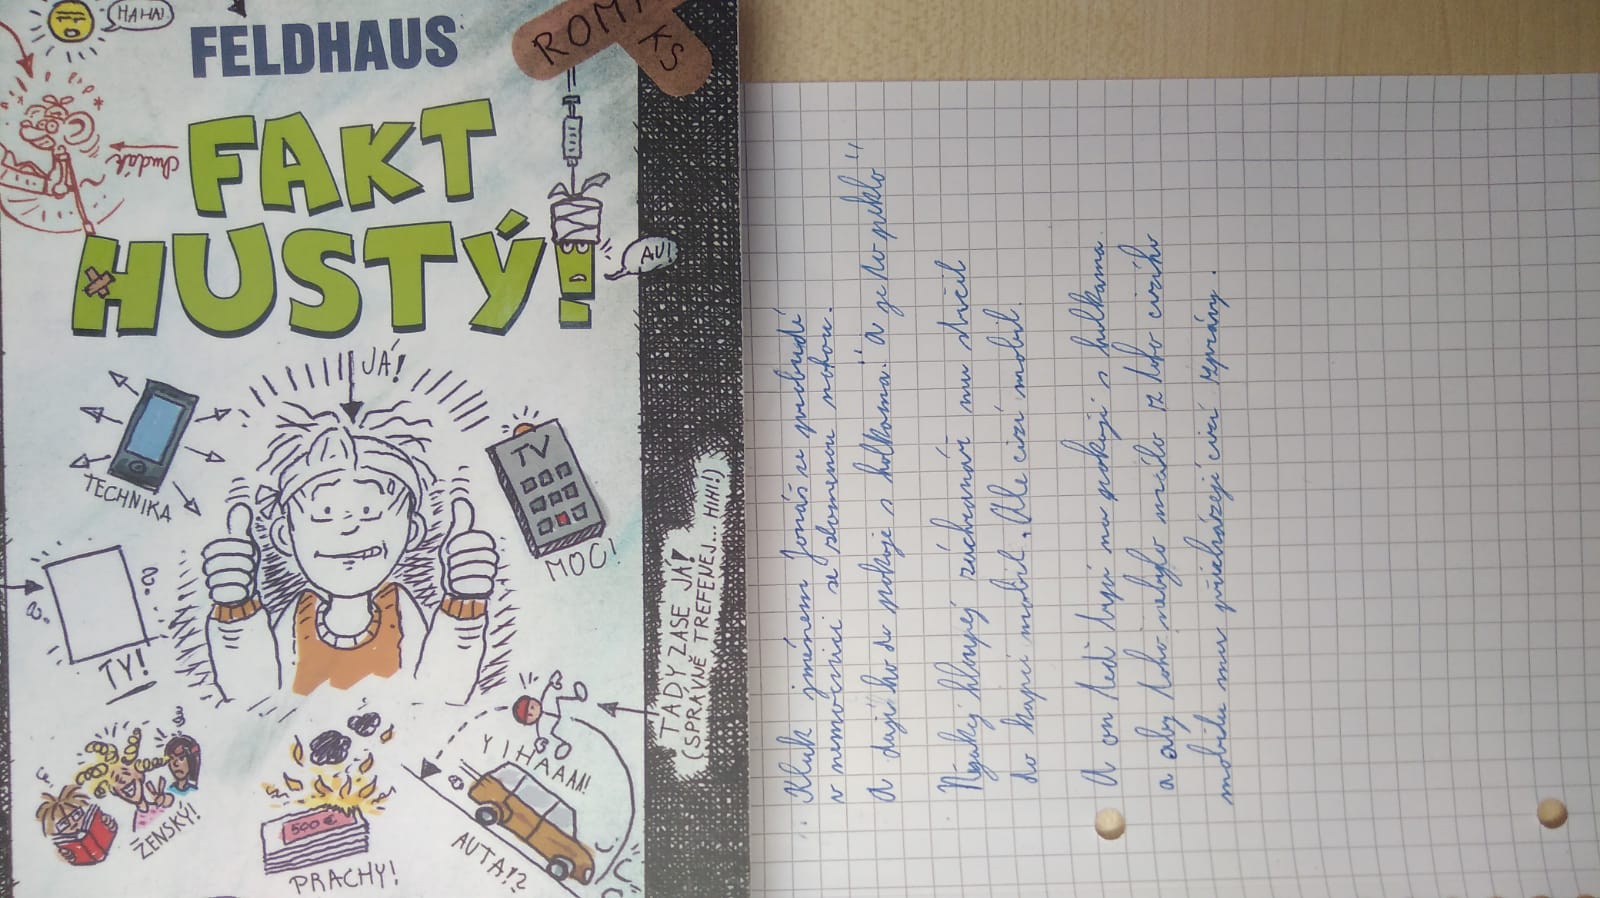 HAHA!
FELDHAUS
ROM
KS
FAKT
HUSTÝ!
chudák
AU!
JÁ!
TECHNIKA
TV
MOC!
TY!
TADY ZASE JÁ!
(SPRÁVNĚ TREFENEJ... HIHI!)
ŽENSKÝ!
500 €
PRACHY!
YIHAAA!!
AUTA!?
Kluk jménem Jonáš se probudí
v nemocnici se zlomenou nohou.
A dají ho do pokoje s holkama." a je to peklo"
Nějaký hloupý záchranář mu strčil
do kapsi mobil. Ale cizí mobil.
A on teď trpí na pokoji s holkama
a aby toho nebylo málo z toho cizího
mobilu mu přicházejí cizí zprávy.